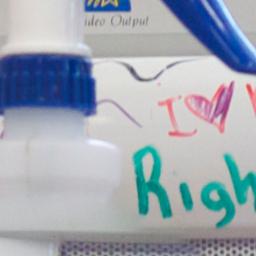 Video Output
I
Righ